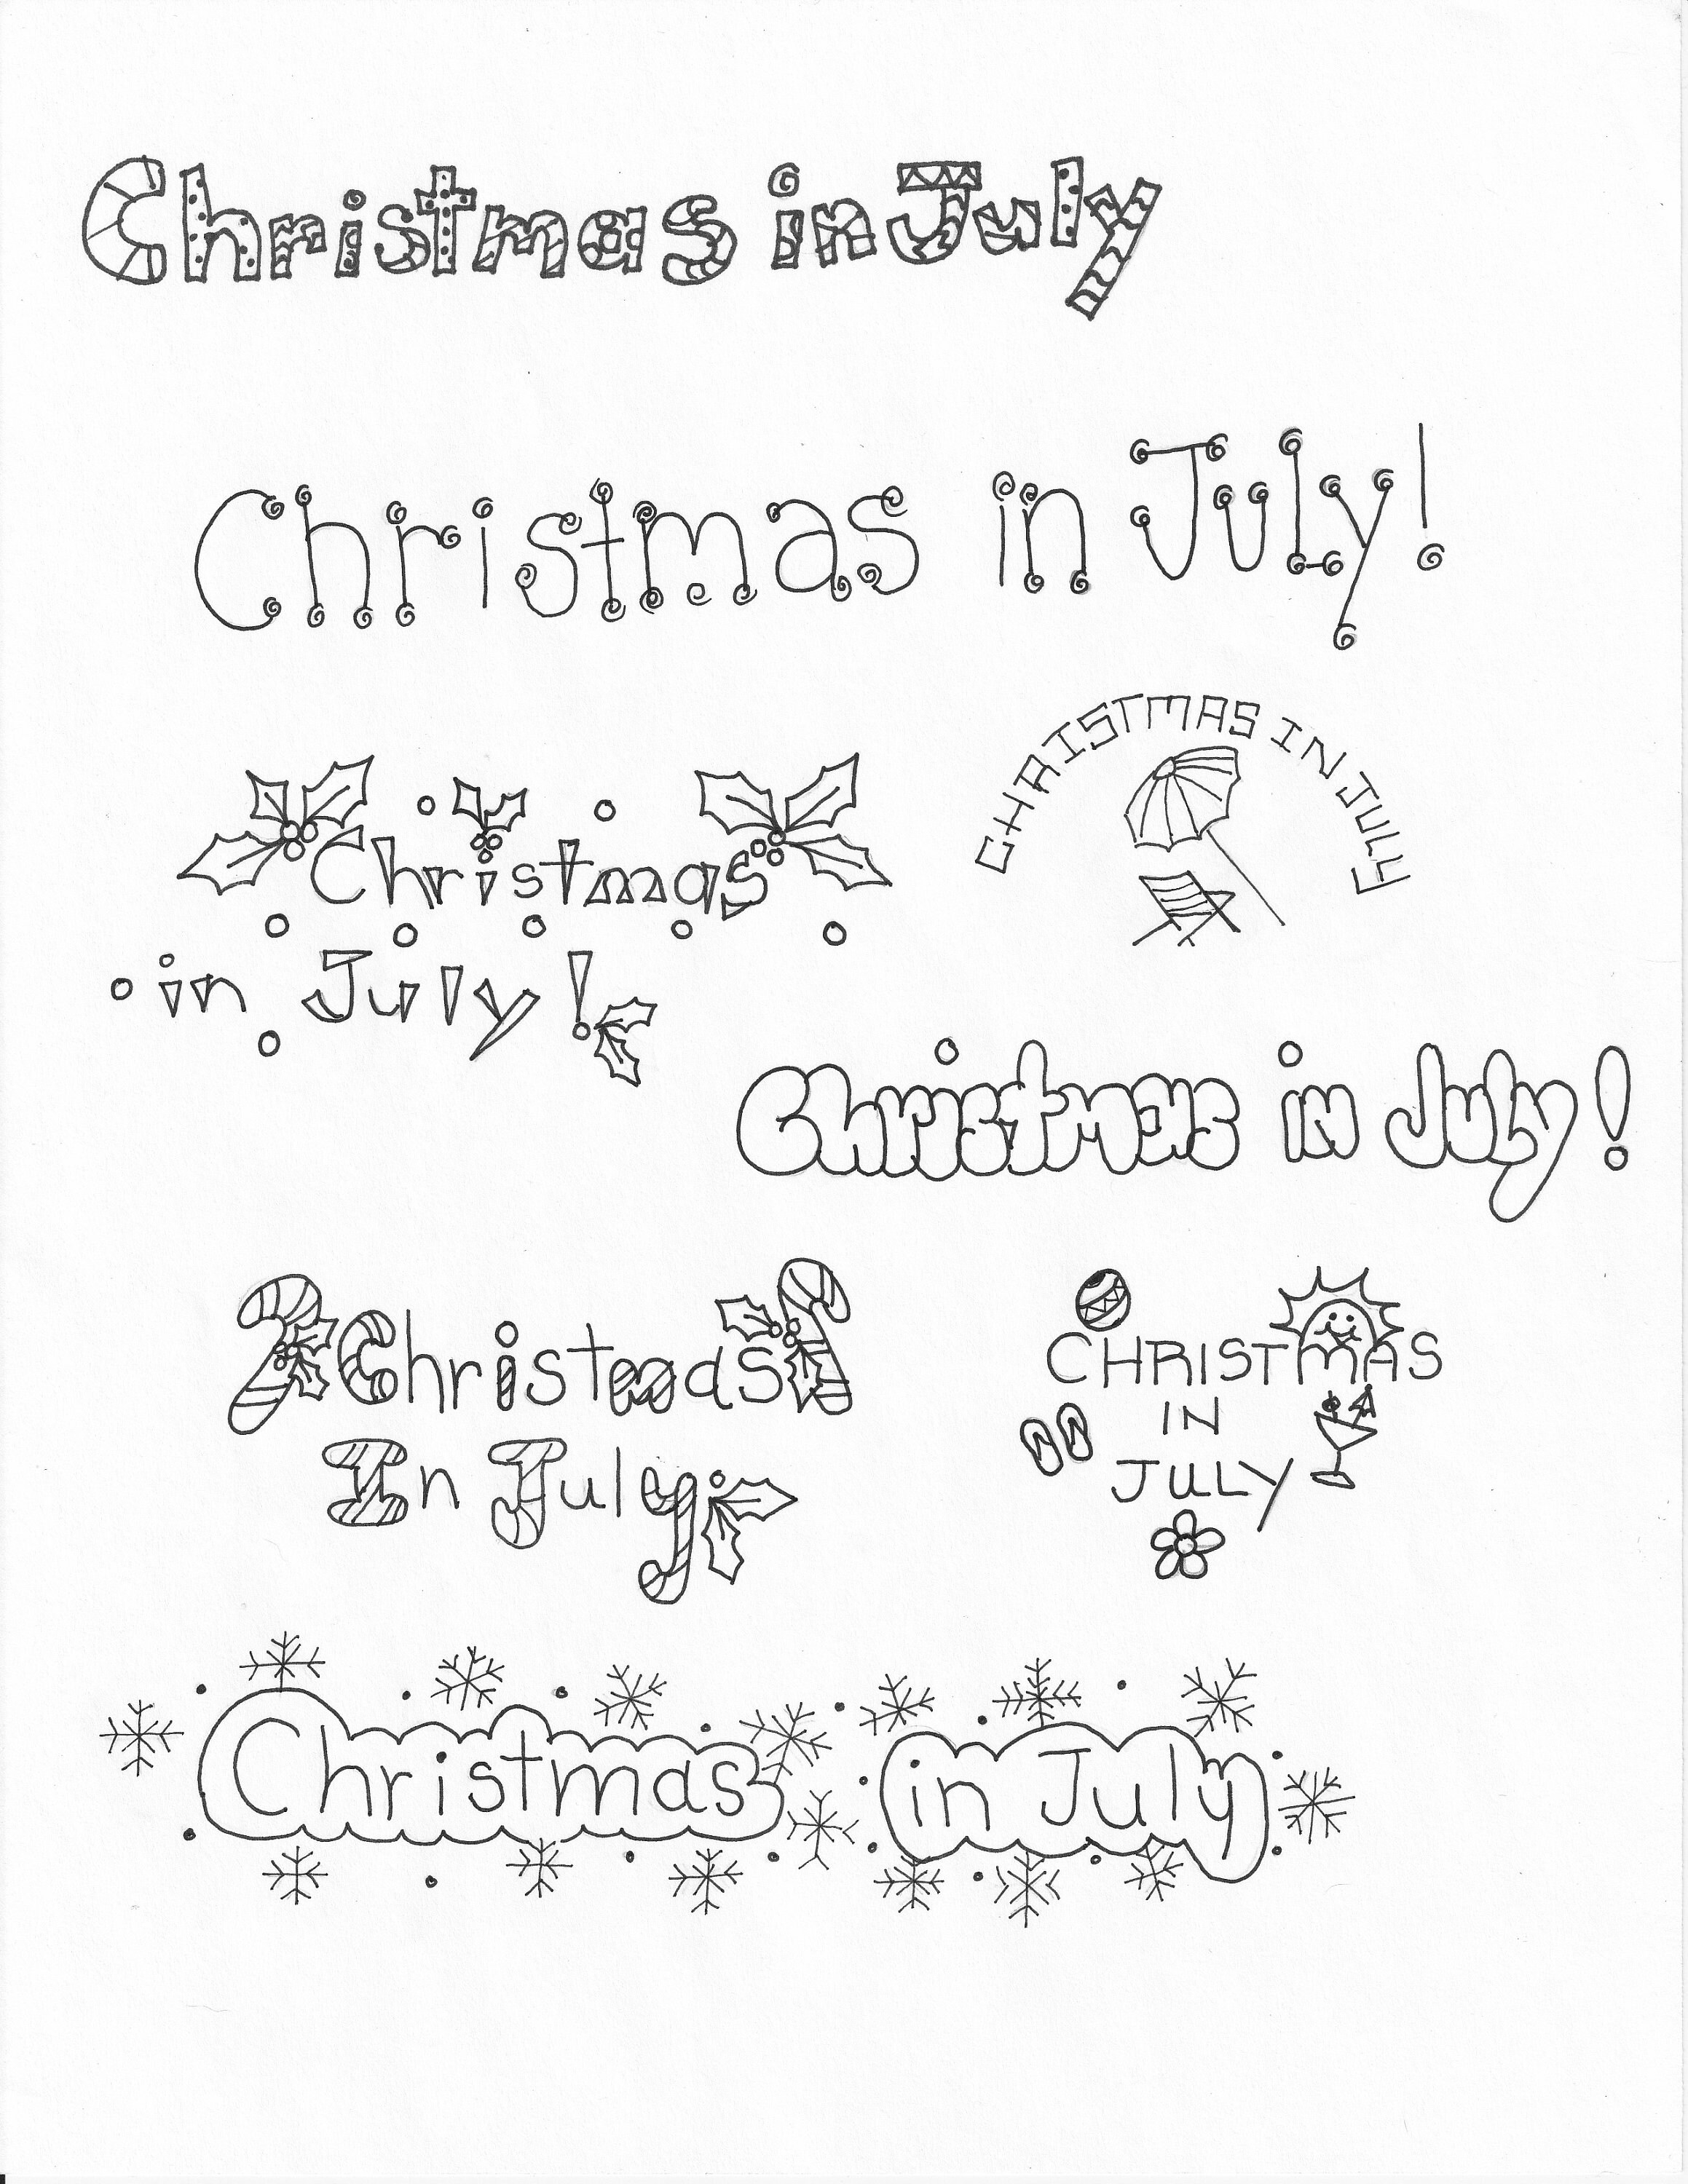 Christmas in July
Christmas in July!
Christmas
in July!
CHRISTMAS IN JULY
Christmas in July!
Christmas
In July
CHRISTMAS
IN
JULY
Christmas in July